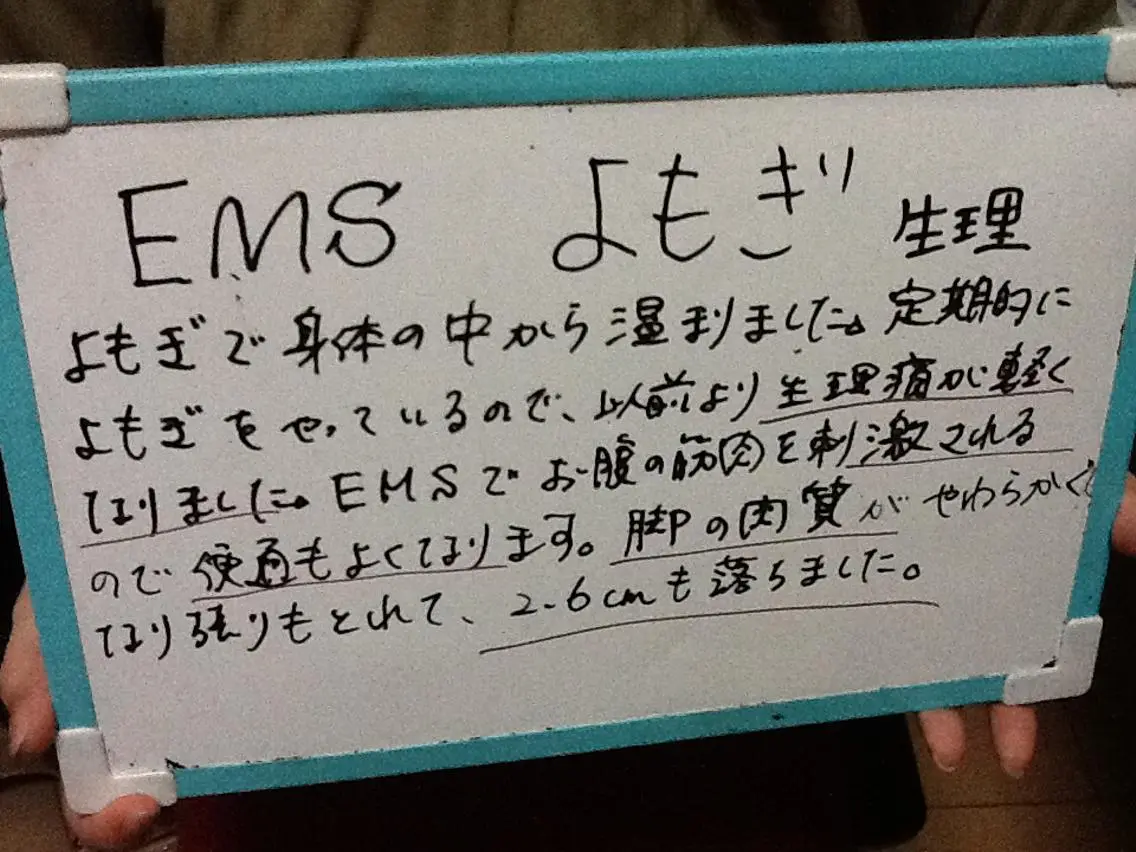 EMS よもぎ 生理
よもぎで身体の中から温まりました。定期的に
よもぎをやっているので、以前より生理痛が軽く
なりました。EMSでお腹の筋肉を刺激される
ので便通もよくなります。脚の肉質がやわらかく
なり張りもとれて、2.6cmも落ちました。